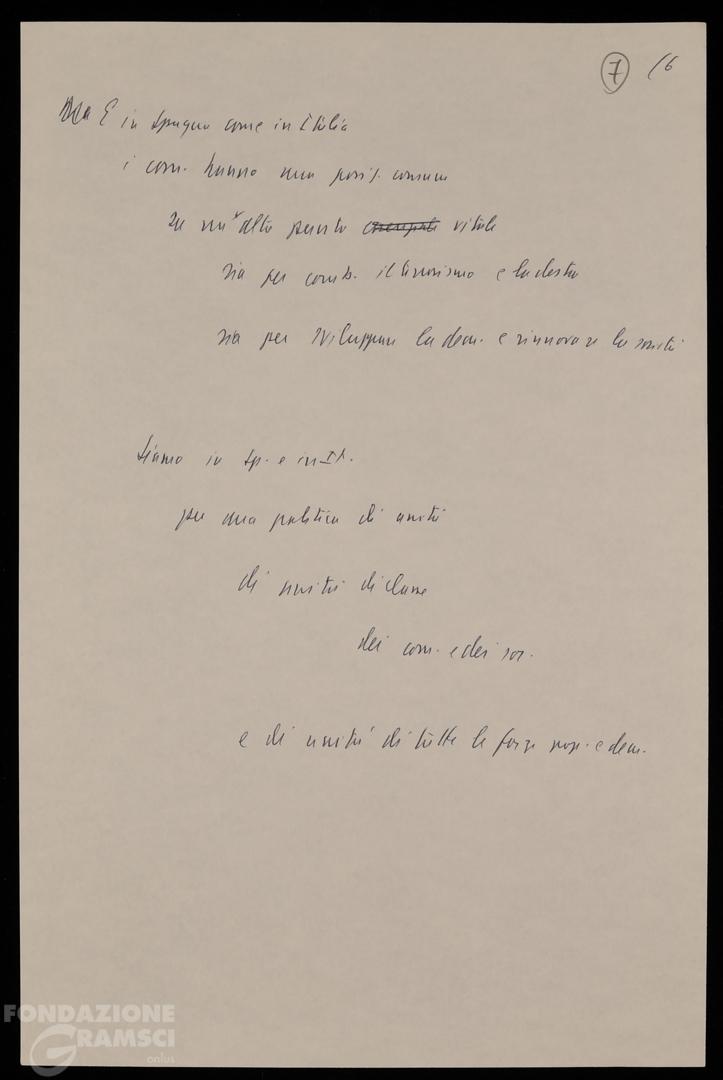 7 16
Ma E in Spagna come in Italia
i com. hanno una posiz. comune
su un altro punto vitale
sia per comb. il terrorismo e la destra
sia per sviluppare la dem. e rinnovare la società
Siamo in Sp. e in It.
per una politica di unità
di unità di classe
dei com. e dei soc.
e di unità di tutte le forze pop. e dem.
FONDAZIONE
GRAMSCI
onlus